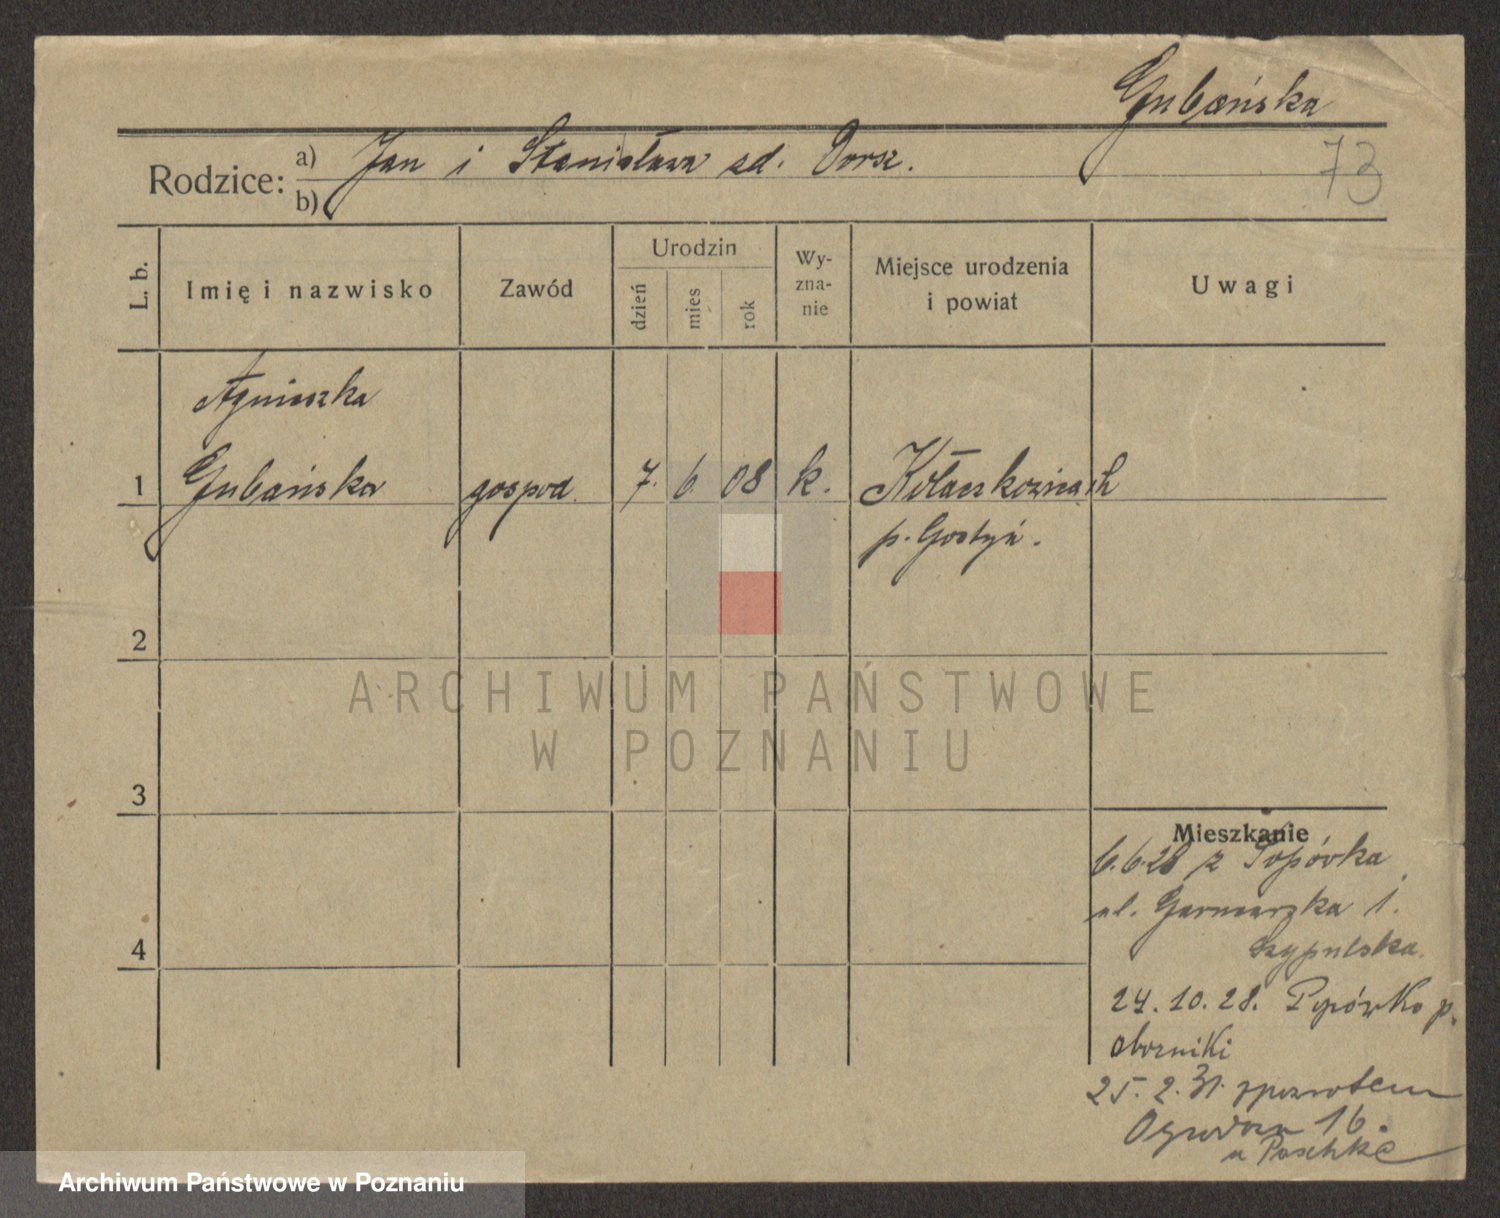 Gubańska
Rodzice: a) Jan i Stanisława zd. Dorsz.
73
b)
L. b.
Imię i nazwisko
Zawód
Urodzin
dzień
mies
rok
Wy-
zna-
nie
Miejsce urodzenia
i powiat
Uwagi
Agnieszka
1 Gubańska gospod. 7. 6. 08 k. Kołaczkowicach
p. Gostyń.
2
ARCHIWUM PAŃSTWOWE
W POZNANIU
3
Mieszkanie
6.6.28 z Popówka
ul. Garncarska 1.
Szypulska.
4
24.10.28. Popówko p.
Oborniki
25.2.31. zpowrotem
Ogrodowa 16.
u Paschke
Archiwum Państwowe w Poznaniu